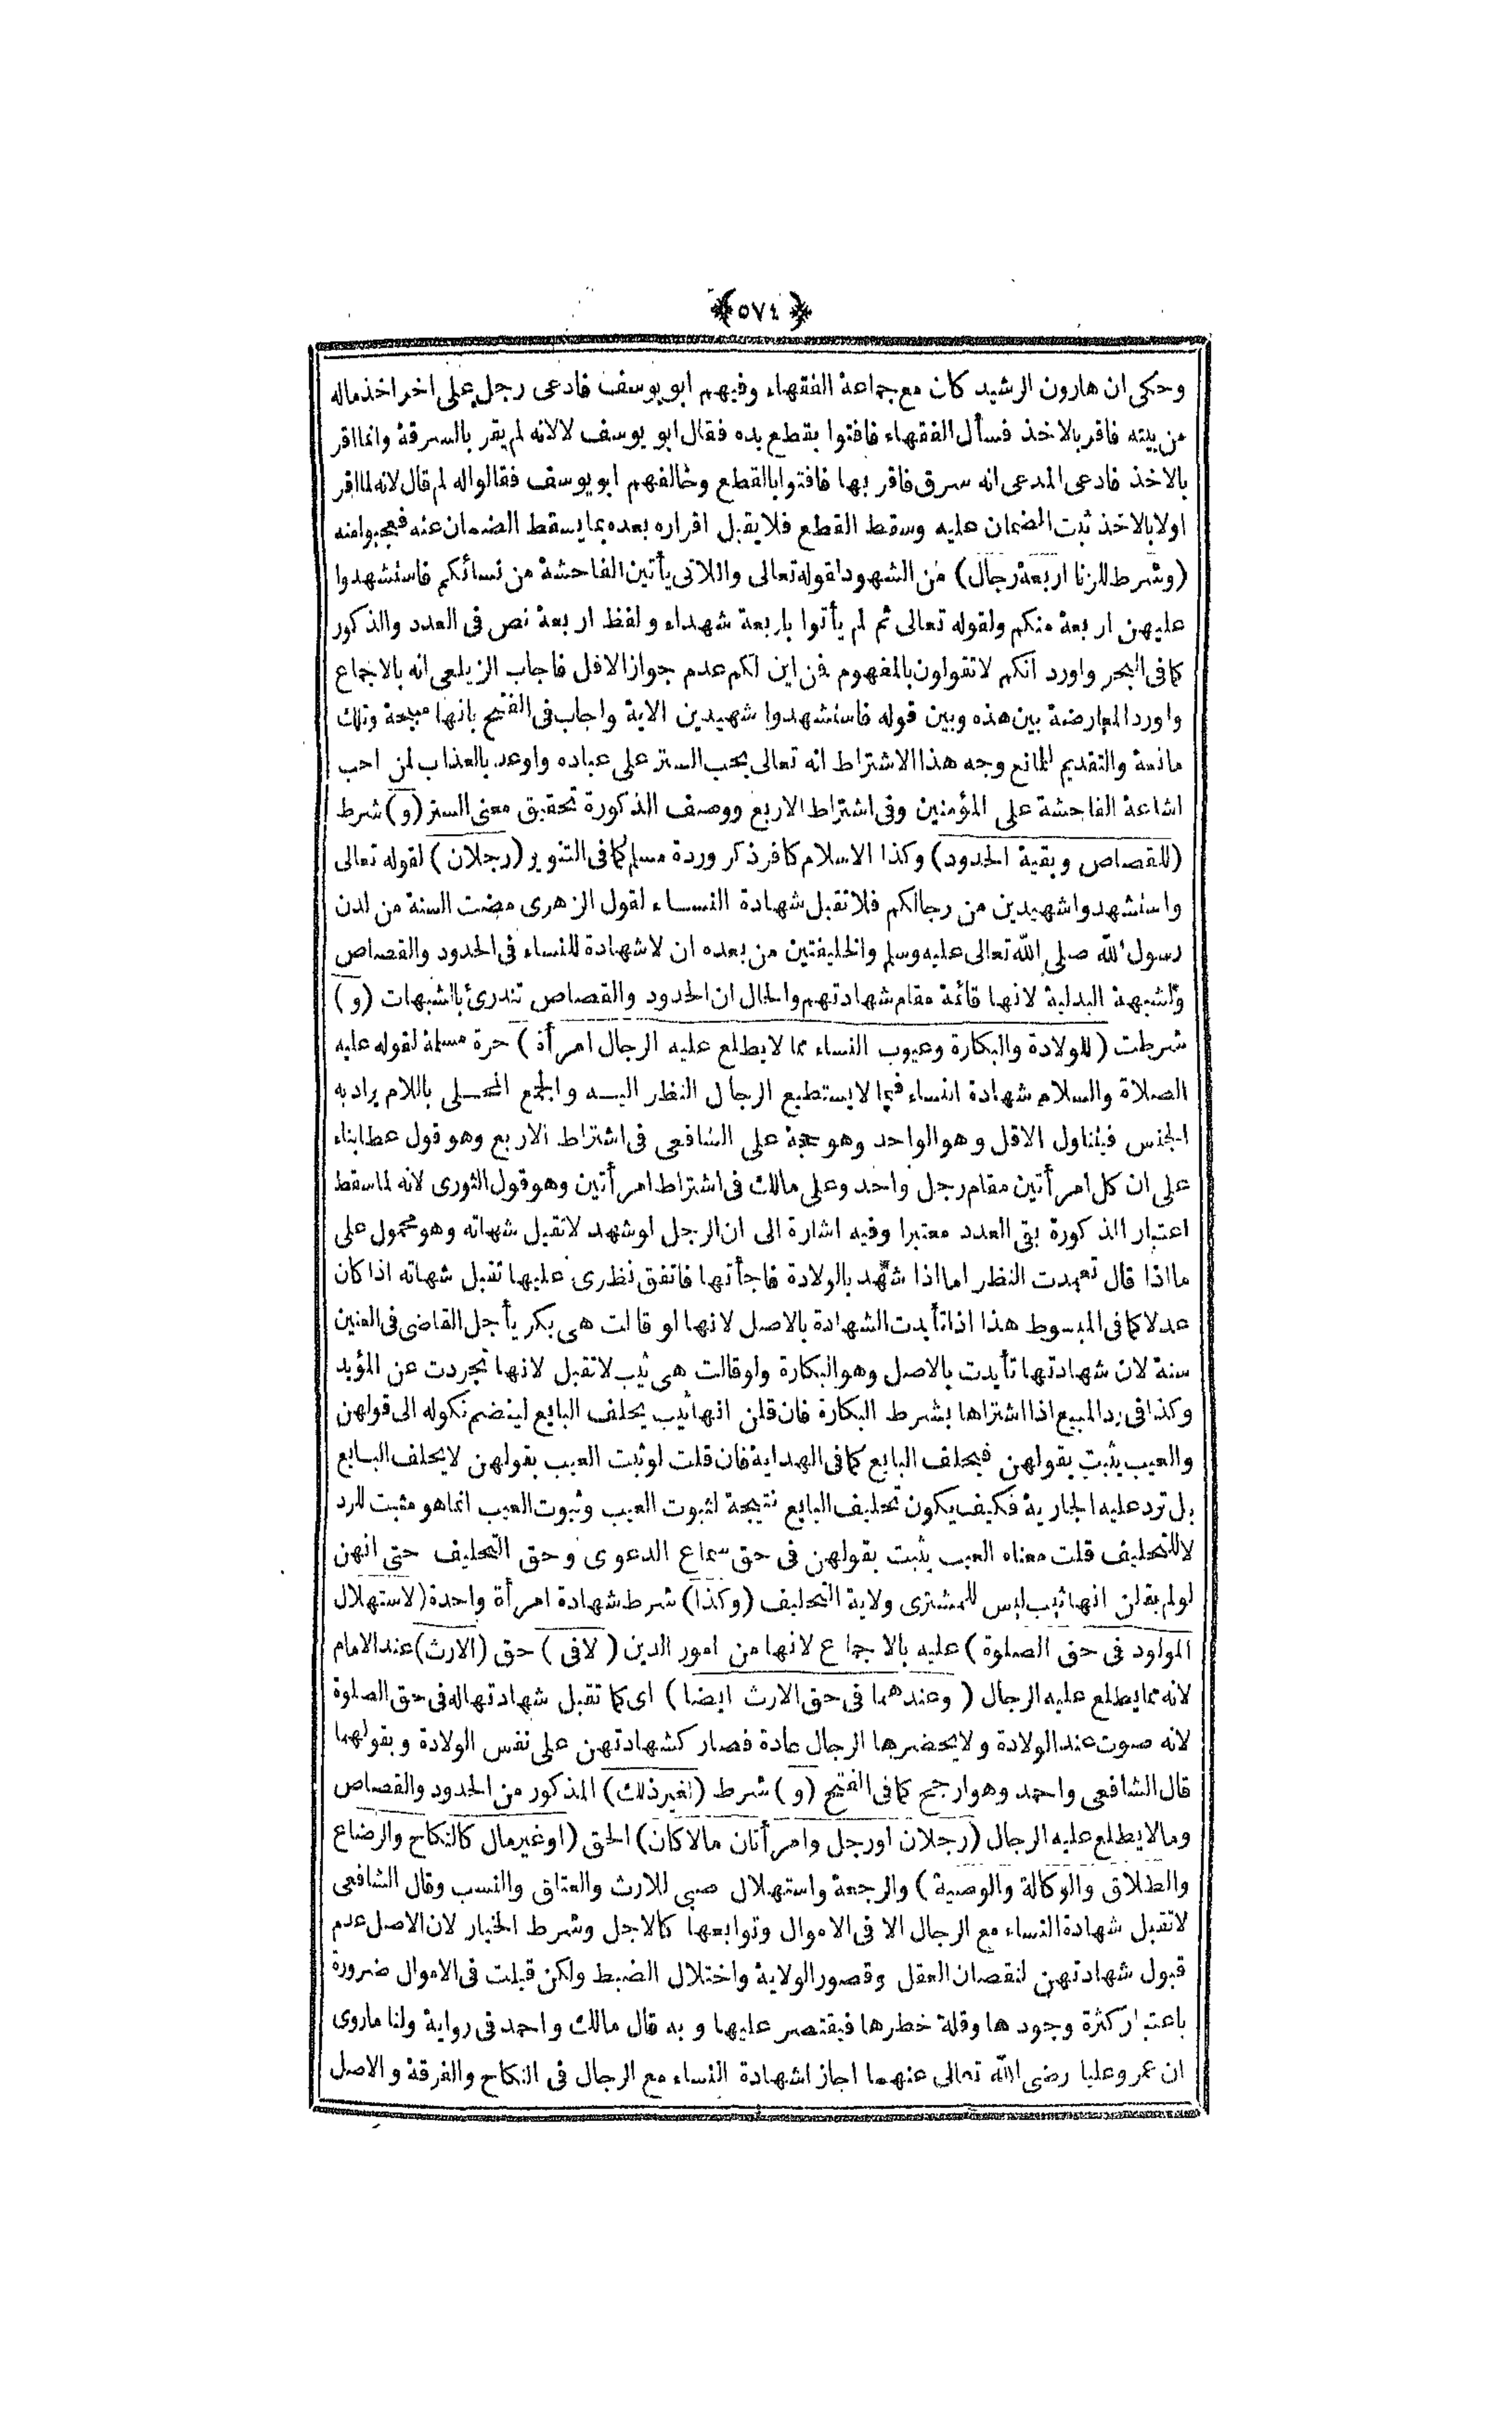 ﴿٥٧٤﴾
وحكى ان هارون الرشيد كان مع جماعة الفقهاء وفيهم ابو يوسف فادعى رجل على اخر اخذ ماله
من بيته فاقر بالاخذ فسأل الفقهاء فافتوا بقطع يده فقال ابو يوسف لا لانه لم يقر بالسرقة وانما اقر
بالاخذ فادعى المدعى انه سرق فاقر بها فافتوا بالقطع وخالفهم ابو يوسف فقالوا له لم قال لانه لما اقر
اولا بالاخذ ثبت الضمان عليه وسقط القطع فلا يقبل اقراره بعده بما يسقط الضمان عنه فعجبوا منه
(وشرط للزنا اربعة رجال) من الشهود لقوله تعالى واللاتى يأتين الفاحشة من نسائكم فاستشهدوا
عليهن اربعة منكم ولقوله تعالى ثم لم يأتوا باربعة شهداء ولفظ اربعة نص فى العدد والذكور
كما فى البحر واورد انكم لا تقولون بالمفهوم فمن اين لكم عدم جواز الاقل فاجاب الزيلعى انه بالاجماع
واورد المعارضة بين هذه وبين قوله فاستشهدوا شهيدين الاية واجاب فى الفتح بانها مبيحة وتلك
مانعة والتقديم للمانع وجه هذا الاشتراط انه تعالى يحب الستر على عباده واوعد بالعذاب لمن احب
اشاعة الفاحشة على المؤمنين وفى اشتراط الاربع ووصف الذكورة تحقيق معنى الستر (و) شرط
(للقصاص وبقية الحدود) وكذا الاسلام كافر ذكر وردة مسلم كما فى التنوير (رجلان) لقوله تعالى
واستشهدوا شهيدين من رجالكم فلا تقبل شهادة النساء لقول الزهرى مضت السنة من لدن
رسول الله صلى الله تعالى عليه وسلم والخليفتين من بعده ان لا شهادة للنساء فى الحدود والقصاص
ولشبهة البدلية لانها قائمة مقام شهادتهم والحال ان الحدود والقصاص تندرئ بالشبهات (و)
شرطت (للولادة والبكارة وعيوب النساء مما لا يطلع عليه الرجال امرأة) حرة مسلمة لقوله عليه
الصلاة والسلام شهادة النساء فيما لا يستطيع الرجال النظر اليه والجمع المحلى باللام يراد به
الجنس فيتناول الاقل وهو الواحد وهو حجة على الشافعى فى اشتراط الاربع وهو قول عطا بناء
على ان كل امرأتين مقام رجل واحد وعلى مالك فى اشتراط امرأتين وهو قول الثورى لانه لما سقط
اعتبار الذكورة بقى العدد معتبرا وفيه اشارة الى ان الرجل لو شهد لا تقبل شهاته وهو محمول على
ما اذا قال تعمدت النظر اما اذا شهد بالولادة فاجأتها فاتفق نظرى عليها تقبل شهاته اذا كان
عدلا كما فى المبسوط هذا اذا تأيدت الشهادة بالاصل لانها لو قالت هى بكر يأجل القاضى فى العنين
سنة لان شهادتها تأيدت بالاصل وهو البكارة ولو قالت هى ثيب لا تقبل لانها تجردت عن المؤيد
وكذا فى رد المبيع اذا اشتراها بشرط البكارة فان قلن انها ثيب يحلف البايع لينضم نكوله الى قولهن
والعيب يثبت بقولهن فيحلف البايع كما فى الهداية فان قلت لو ثبت العيب بقولهن لا يحلف البايع
بل ترد عليه الجارية فكيف يكون تحليف البايع نتيجة لثبوت العيب وثبوت العيب انما هو مثبت للرد
لا للتحليف قلت معناه العيب يثبت بقولهن فى حق سماع الدعوى وحق التحليف حتى انهن
لو لم يقلن انها ثيب ليس للمشترى ولاية التحليف (وكذا) شرط شهادة امرأة واحدة (لاستهلال
المولود فى حق الصلوة) عليه بالاجماع لانها من امور الدين (لا فى) حق (الارث) عند الامام
لانه مما يطلع عليه الرجال (وعندهما فى حق الارث ايضا) اى كما تقبل شهادتها له فى حق الصلوة
لانه صوت عند الولادة ولا يحضرها الرجال عادة فصار كشهادتهن على نفس الولادة وبقولهما
قال الشافعى واحمد وهو ارجح كما فى الفتح (و) شرط (لغير ذلك) المذكور من الحدود والقصاص
وما لا يطلع عليه الرجال (رجلان او رجل وامرأتان مالا كان) الحق (او غير مال كالنكاح والرضاع
والطلاق والوكالة والوصية) والرجعة واستهلال صبى للارث والعتاق والنسب وقال الشافعى
لا تقبل شهادة النساء مع الرجال الا فى الاموال وتوابعها كالاجل وشرط الخيار لان الاصل عدم
قبول شهادتهن لنقصان العقل وقصور الولاية واختلال الضبط ولكن قبلت فى الاموال ضرورة
باعتبار كثرة وجودها وقلة خطرها فيقتصر عليها وبه قال مالك واحمد فى رواية ولنا ما روى
ان عمر وعليا رضى الله تعالى عنهما اجازا شهادة النساء مع الرجال فى النكاح والفرقة والاصل